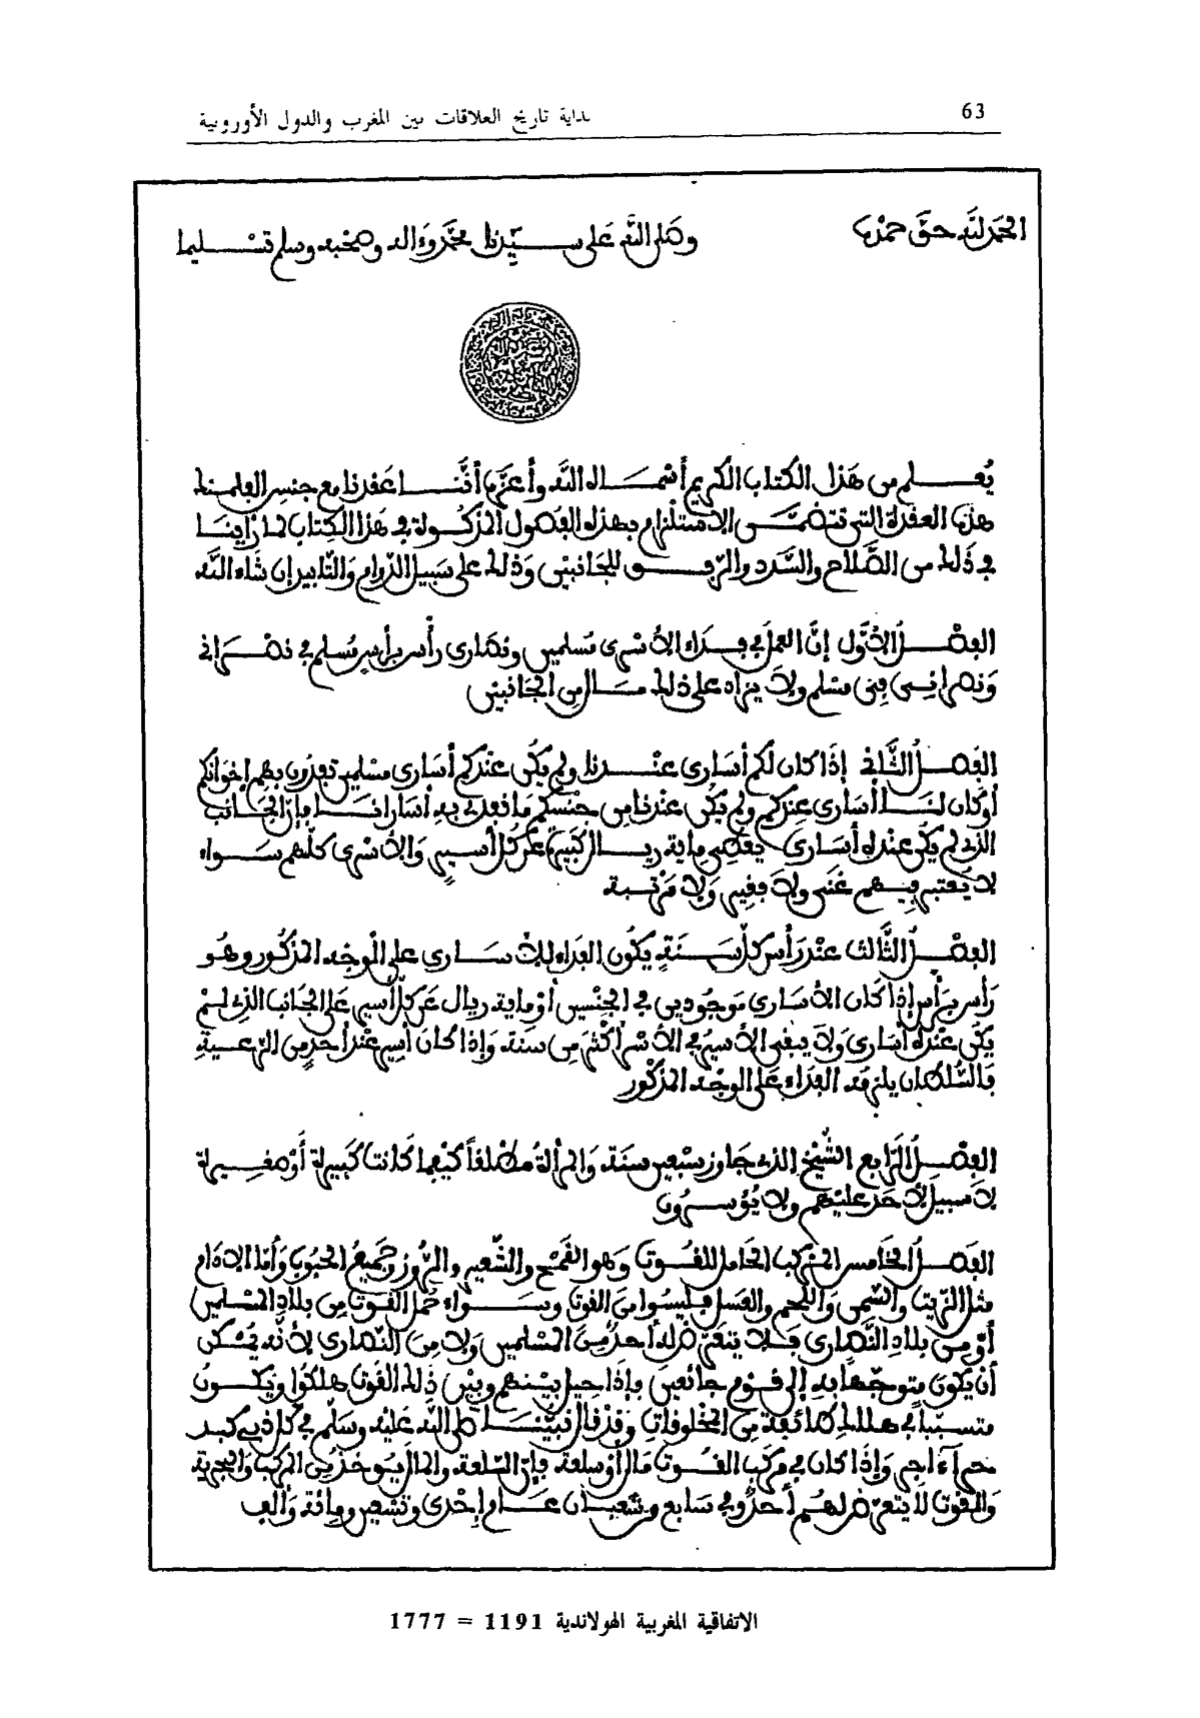 63
بداية تاريخ العلاقات بين المغرب والدول الأوروبية
الحمد لله حق حمده
وصلى الله على سيدنا محمد وءاله وصحبه وسلم تسليما
يُعلم من هذا الكتاب الكريم أسماه الله وأعزه أننا عقدنا مع جنس الفلمنك
هذه العقدة التي تتضمن الاستلزام بهذه الفصول المذكورة في هذا الكتاب لما رأينا
في ذلك من الصلاح والسدد والرفق للجانبين وذلك على سبيل الدوام والتابيد إن شاء الله
الفصل الأول إنّ العمل في فداء الأسرى مسلمين ونصارى رأس برأس مسلم في نصراني
ونصراني في مسلم ولا يزاد على ذلك مال من الجانبين
الفصل الثاني إذا كان لكم أسارى عندنا ولم يكن عندكم أسارى مسلمين تفدون بهم إخوانكم
أو كان لنا أسارى عندكم ولم يكن عندنا من جنسكم ما نفدي به أسارانا فإن الجانب
الذي لم يكن عنده أسارى يعطي ماية ريال كبيرة عن كل أسير والأسرى كلهم سواء
لا يُعتبر فيهم غني ولا فقير ولا مرتبة
الفصل الثالث عند رأس كل سنة يكون الفداء للأسارى على الوجه المذكور وهو
رأس برأس إذا كان الأسارى موجودين في الجنسين أو ماية ريال عن كل أسير على الجانب الذي لم
يكن عنده أسارى ولا يبقى الأسير في الأسر أكثر من سنة وإذا كان أسير عند أحد من الرعية
فالسلطان يلزمه الفداء على الوجه المذكور
الفصل الرابع الشيخ الذي جاوز سبعين سنة والمرأة مطلقاً كيفما كانت كبيرة أو صغيرة
لا سبيل لأحد عليهم ولا يُؤسرون
الفصل الخامس المركب الحامل للقوت وهو القمح والشعير والروز وجميع الحبوب وأما الادام
مثل الزيت والسمن واللحم والعسل فليسوا من القوت وسواء حمل القوت من بلاد المسلمين
أو من بلاد النصارى فلا يتعرّض له أحد من المسلمين ولا من النصارى لأنه يمكن
أن يكون متوجهاً به إلى قوم جائعين فإذا حيل بينهم وبين ذلك القوت هلكوا ويكون
متسبباً في هلاك طائفة من المخلوقات وقد قال نبينا صلى الله عليه وسلم في كل ذي كبد
حراء أجر وإذا كان في مركب القوت مال أو سلعة فإن السلعة والمال يوخذ من المركب والبحرية
والقوت لا يتعرّض لهم أحد وفي سابع وشعبان عام إحدى وتسعين ومائة وألف
الاتفاقية المغربية الهولاندية 1191 = 1777